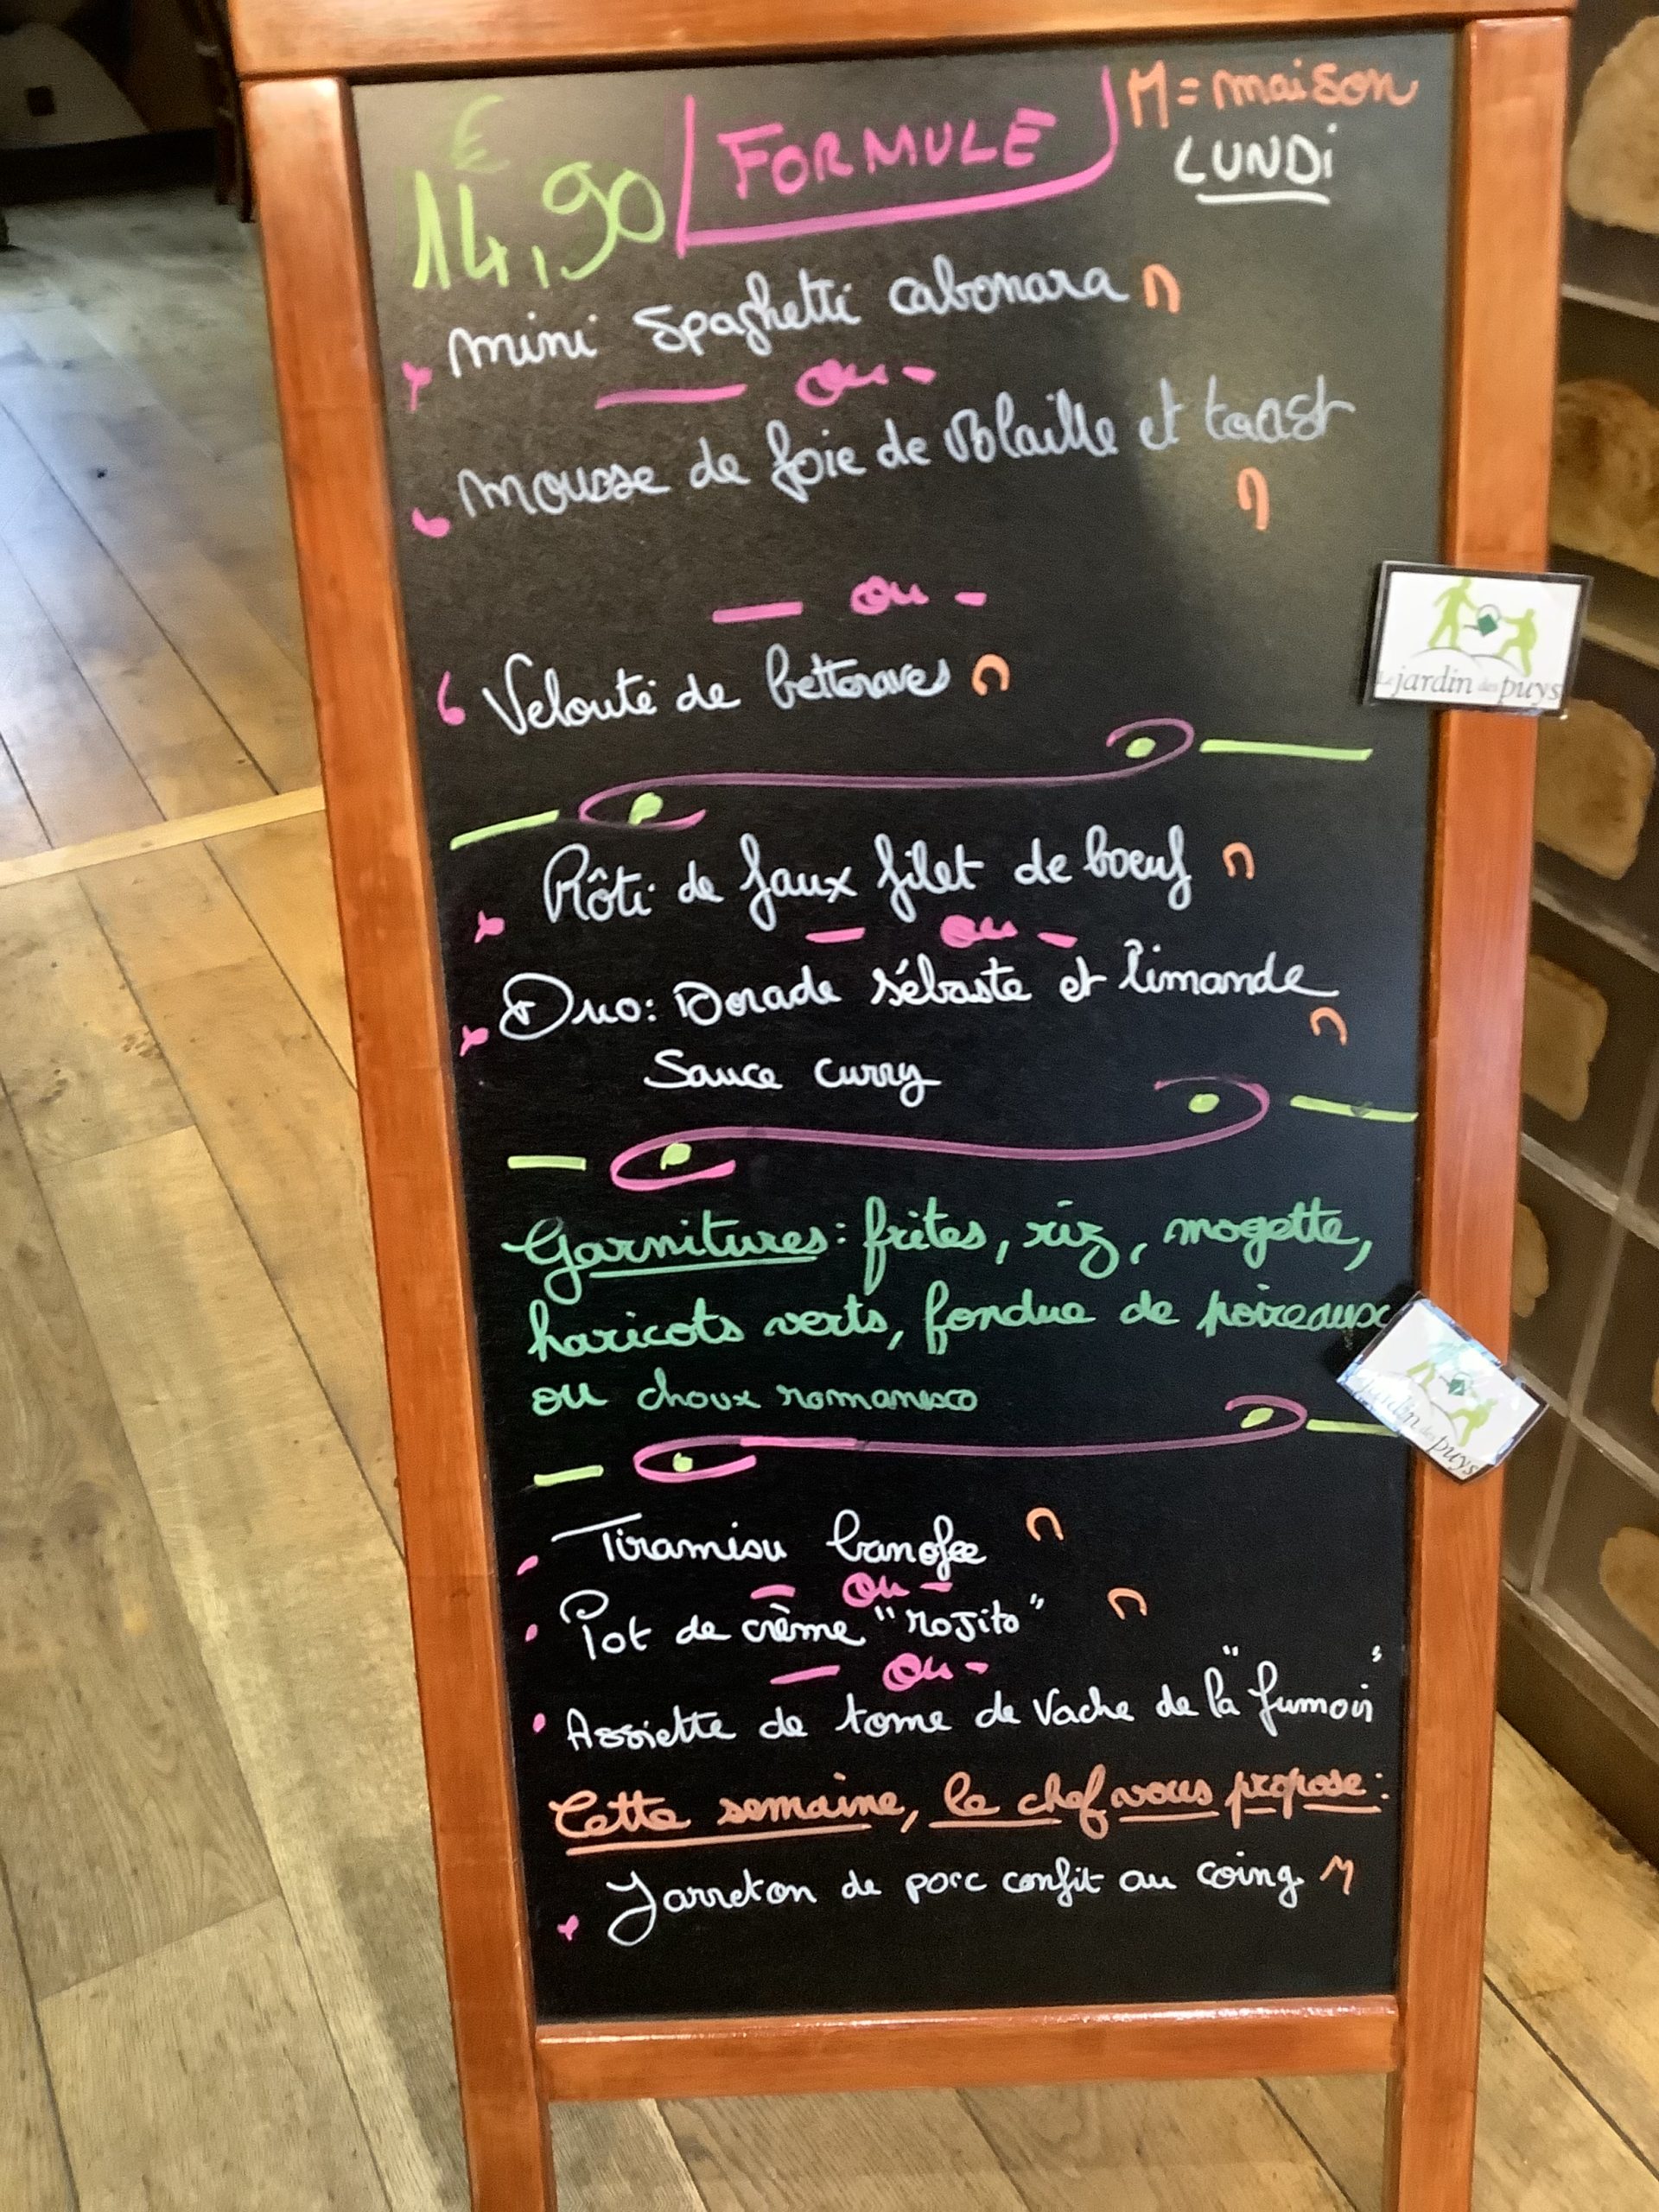 €
14,90 FORMULE M = maison
LUNDi
mini Spaghetti cabonara M
ou
mousse de foie de Volaille et toast
M
ou
Velouté de betteraves M
Rôti de faux filet de boeuf M
ou
Duo: Dorade sébaste et limande
M
Sauce curry
Garnitures: frites, riz, mogette,
haricots verts, fondue de poireaux
ou choux romanesco
Tiramisu banofee M
ou
Pot de crème "rojito" M
ou
Assiette de tome de Vache de la "fumoir"
Cette semaine, le chef vous propose:
Jarreton de porc confit au coing M
Le jardin des puys
jardin des puys